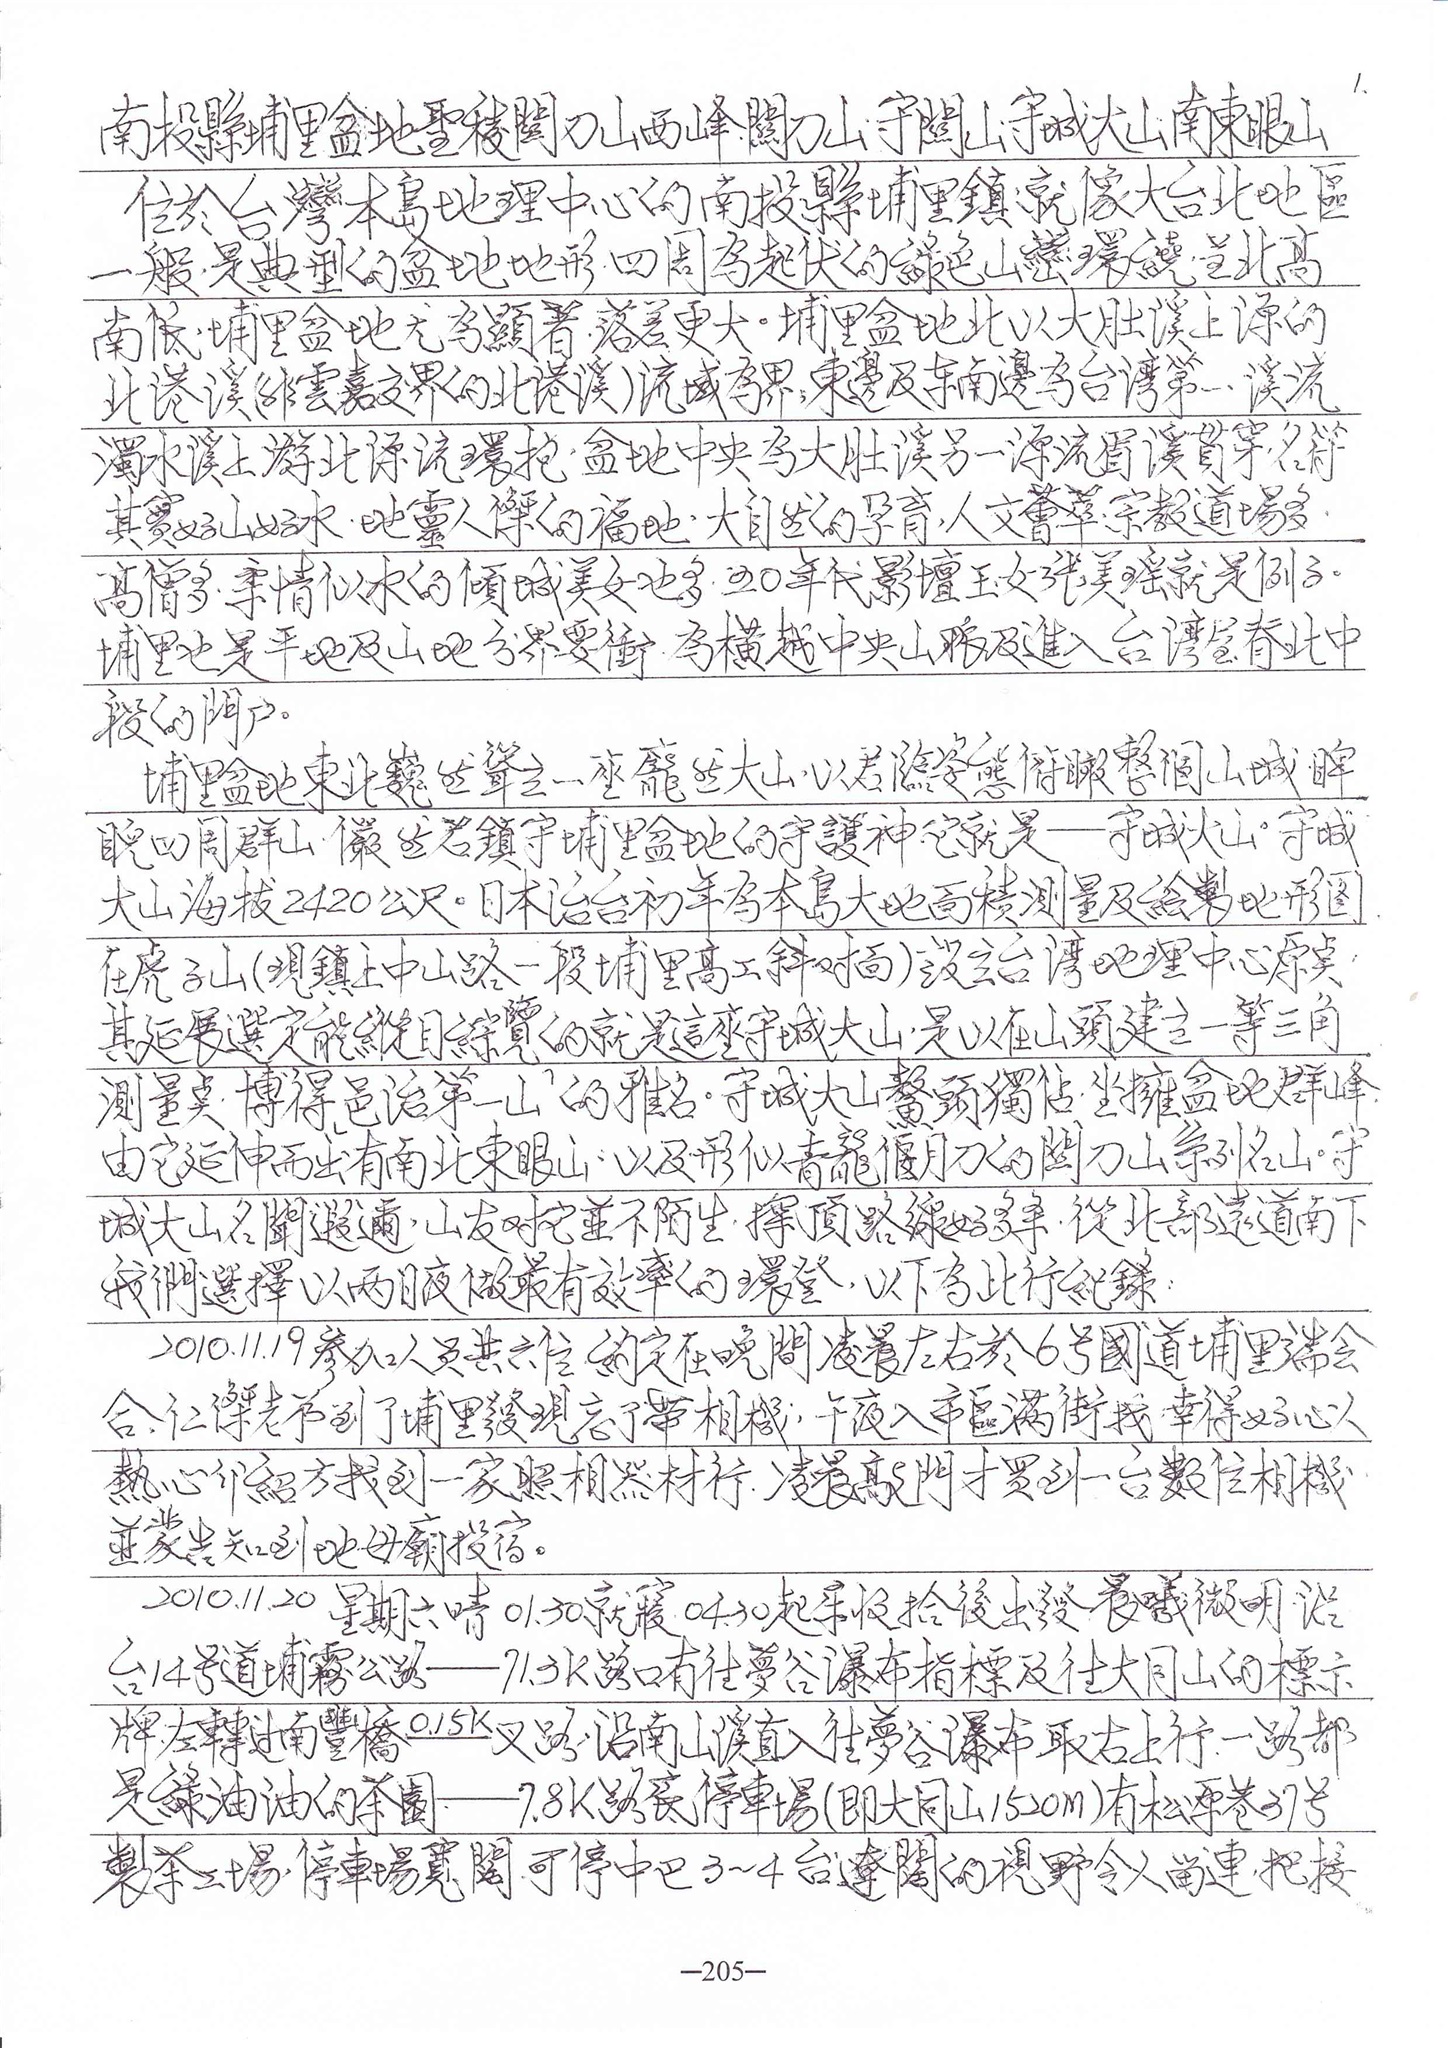 1.
南投縣埔里盆地聖稜關刀山西峰.關刀山.守關山.守城大山.南東眼山
位於台灣本島地理中心的南投縣埔里鎮.就像大台北地區
一般.是典型的盆地地形.四周為起伏的綠色山巒環繞.呈北高
南低.埔里盆地尤為顯著.落差更大。埔里盆地北以大肚溪上源的
北港溪(非雲嘉交界的北港溪)流域為界;東邊及东南邊為台灣第一溪流
濁水溪上游北源流環抱.盆地中央為大肚溪另一源流眉溪貫穿.名符
其實好山好水.地靈人傑的福地.大自然的孕育,人文薈萃.宗教道場多.
高僧多.柔情似水的傾城美女也多.五0年代影壇玉女張美瑤就是例子。
埔里也是平地及山地分界要衝.為橫越中央山脈及進入台灣屋脊北中
段的門户。
埔里盆地東北巍然聳立一座龐然大山.以君臨姿態俯瞰整個山城.睥
睨四周群山.儼然若鎮守埔里盆地的守護神.它就是──守城大山。守城
大山海拔2420公尺。日本治台初年為本島大地面積測量及繪製地形圖
在虎子山(現鎮上中山路一段埔里高工斜对面)設立台灣地理中心原桌.
其延展選定能縱目綜覽的就是這座守城大山.是以在山頭建立一等三角
測量桌.博得「邑治第一山」的雅名。守城大山鰲頭獨佔.坐擁盆地群峰.
由它延伸而出有南北東眼山.以及形似青龍偃月刀的關刀山系列名山。守
城大山名聞遐邇,山友对它並不陌生.探頂路線好多条.從北部遠道南下
我們選擇以两日夜做最有效率的環登,以下為此行紀錄:
2010.11.19參加人員共六位.約定在晚間凌晨左右於6号國道埔里端会
合.仁傑老弟到了埔里發現忘了帶相機,午夜入市區滿街找.幸得好心人
熱心介紹方找到一家照相器材行.凌晨敲門才買到一台數位相機
並蒙告知到地母廟投宿。
2010.11.20 星期六晴 01.30就寢.04.30起床收拾後出發.晨曦微明.沿
台14号道埔霧公路──71.3K路口有往夢谷瀑布指標及往大同山的標示
牌.左轉過南豐橋 0.15K 叉路.沿南山溪直入往夢谷瀑布.取右上行.一路都
是綠油油的茶園──7.8K路底停車場(即大同山1520M)有松原巷37号
製茶工場.停車場寬闊.可停中巴3~4台.遼闊的視野令人留連.把接
—205—